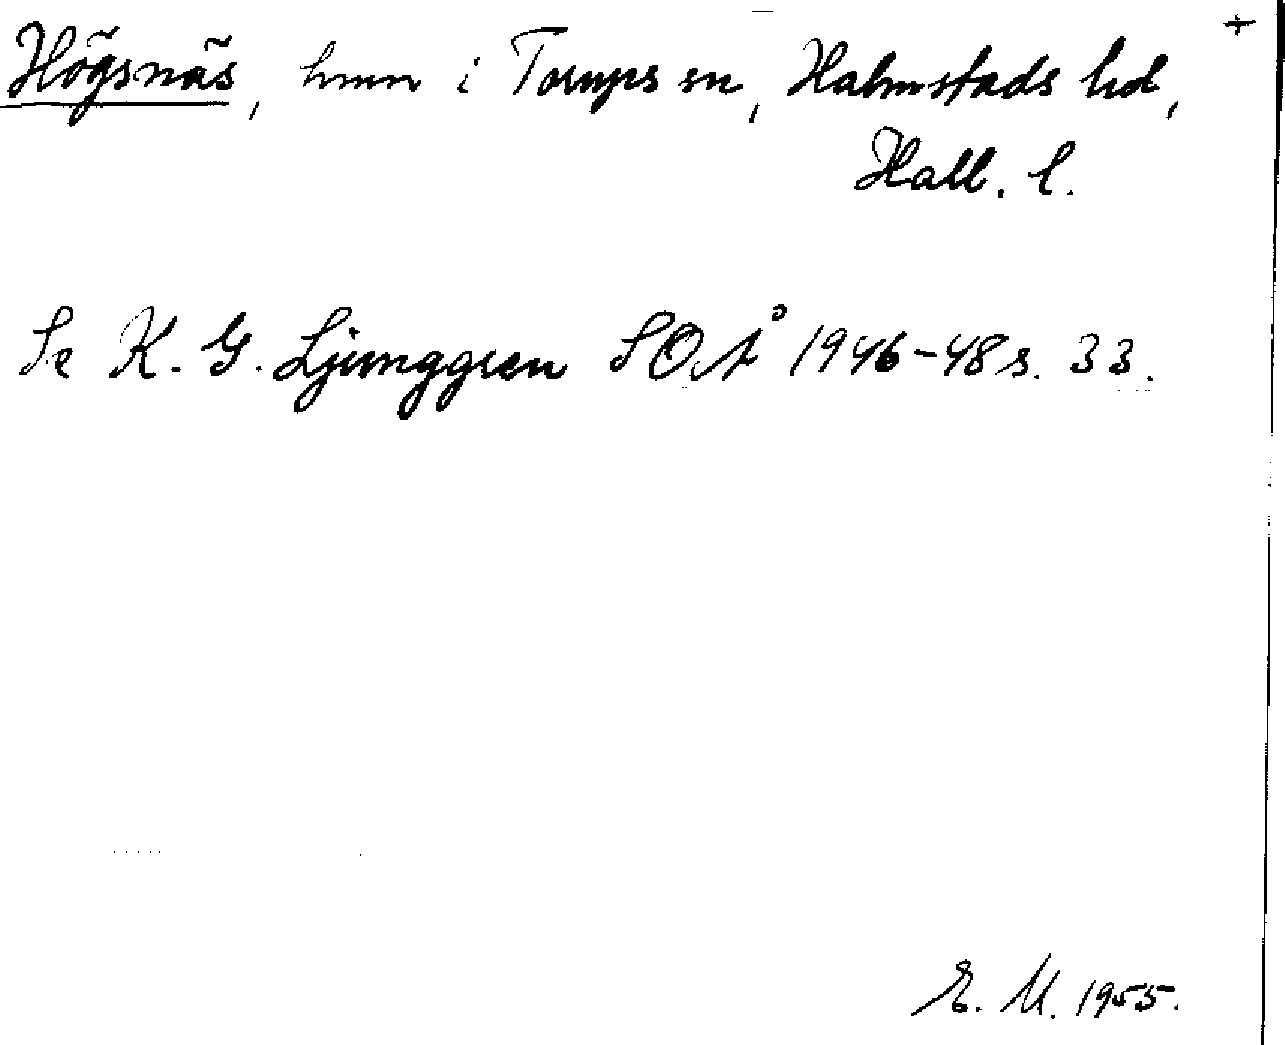 +
Högsnäs, hmn i Torups sn, Halmstads hd,
Hall. l.
Se K. G. Ljunggren SOÅ 1946-48 s. 33.
E. M. 1955.